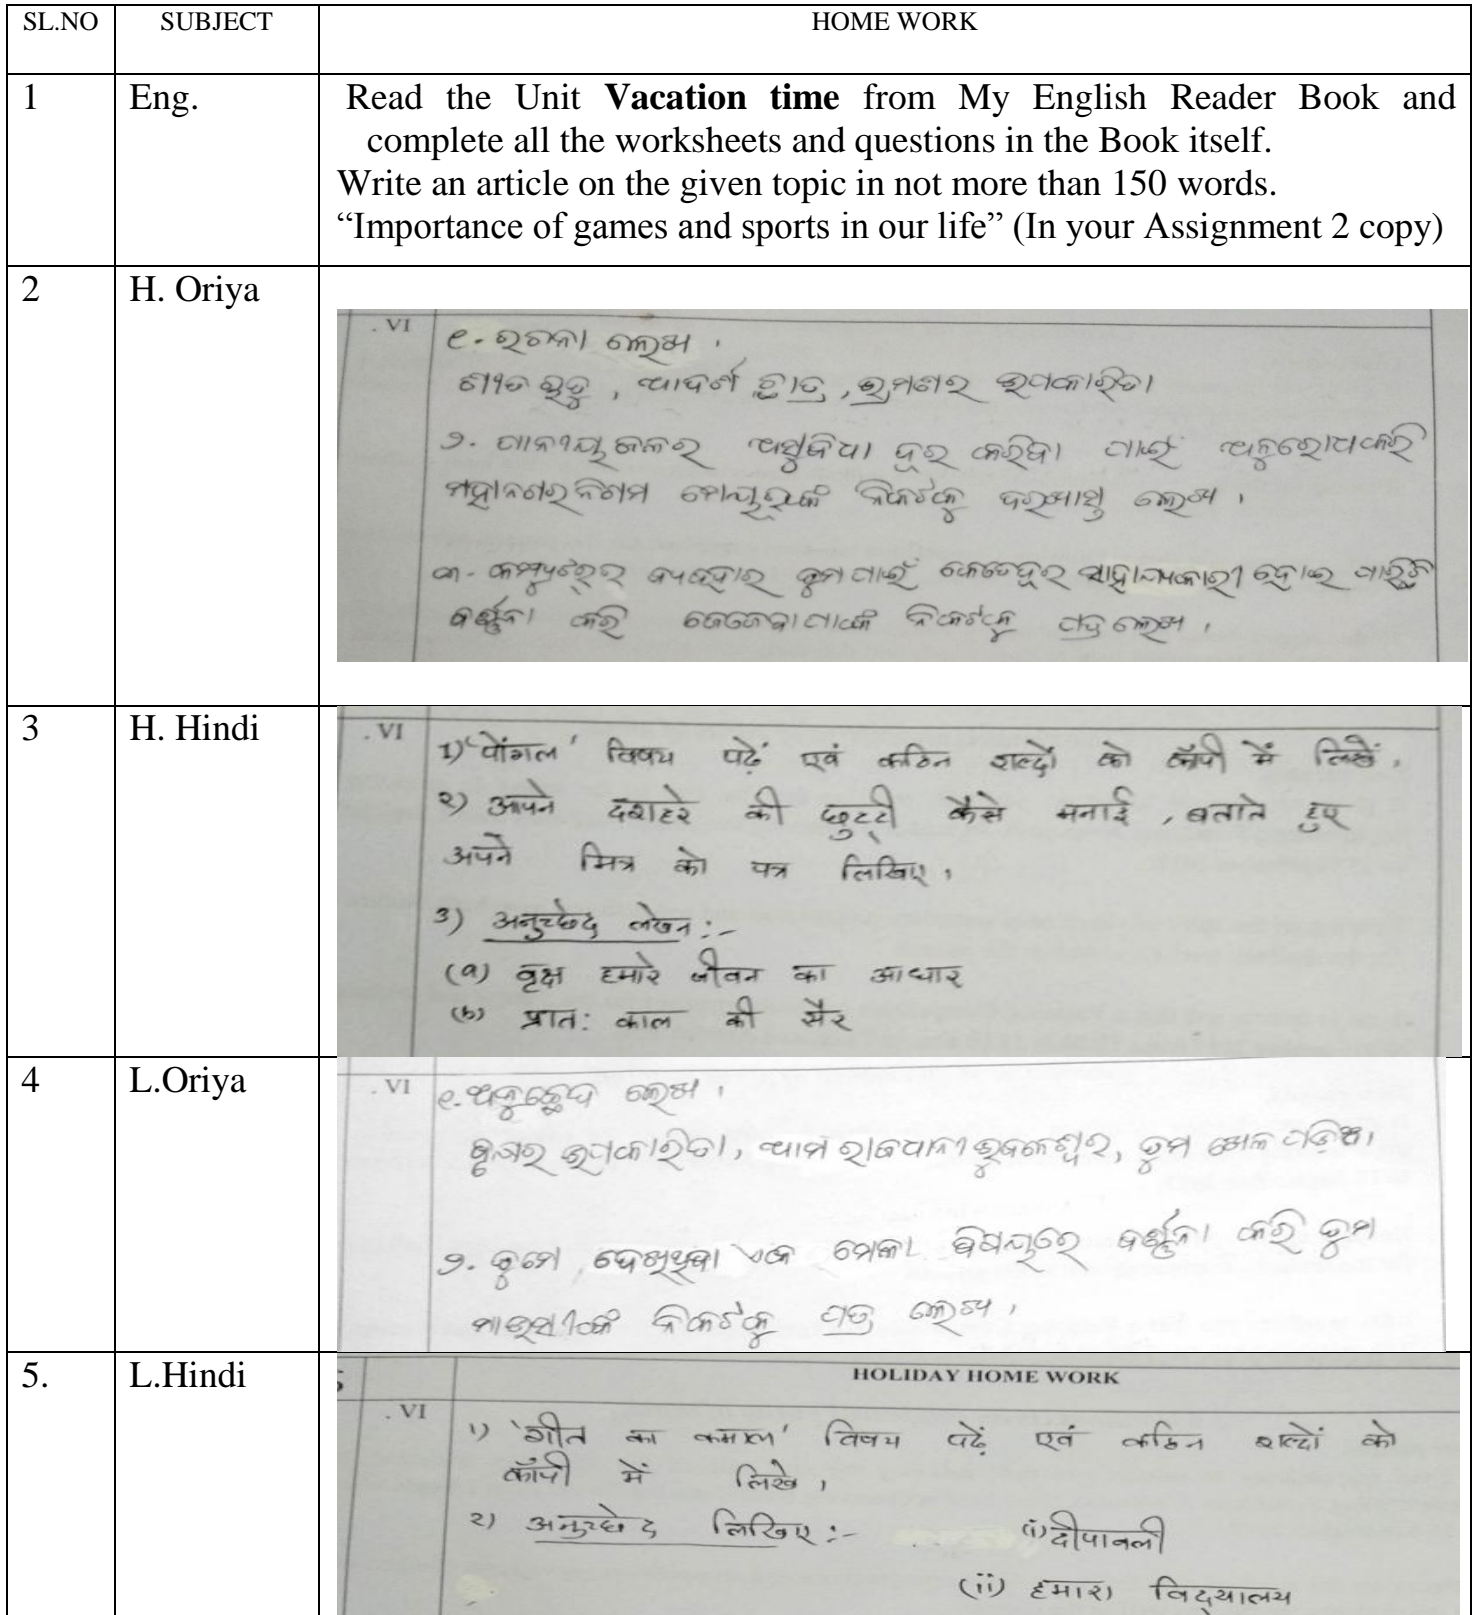 SL.NO SUBJECT HOME WORK
1 Eng. Read the Unit Vacation time from My English Reader Book and
complete all the worksheets and questions in the Book itself.
Write an article on the given topic in not more than 150 words.
“Importance of games and sports in our life” (In your Assignment 2 copy)
2 H. Oriya
. VI
୧. ରଚନା ଲେଖ ।
ଶୀତ ଋତୁ , ଆଦର୍ଶ ଛାତ୍ର , ଭ୍ରମଣର ଉପକାରିତା
୨. ପାନୀୟ ଜଳର ଅସୁବିଧା ଦୂର କରିବା ପାଇଁ ଅନୁରୋଧ କରି
ମହାନଗର ନିଗମ ମେୟରଙ୍କ ନିକଟକୁ ଦରଖାସ୍ତ ଲେଖ ।
୩- କମ୍ପ୍ୟୁଟରର ବ୍ୟବହାର ତୁମ ପାଇଁ କେତେଦୂର ସାହାଯ୍ୟକାରୀ ହୋଇ ପାରୁଛି
ବର୍ଣ୍ଣନା କରି ଜେଜେବାପାଙ୍କ ନିକଟକୁ ପତ୍ର ଲେଖ ।
3 H. Hindi
. VI
1) 'पोंगल' विषय पढ़ें एवं कठिन शब्दों को कॉपी में लिखें ।
२) आपने दशहरे की छुट्टी कैसे मनाई , बताते हुए
अपने मित्र को पत्र लिखिए ।
3) अनुच्छेद लेखन :-
(a) वृक्ष हमारे जीवन का आधार
(b) प्रात: काल की सैर
4 L.Oriya
. VI
୧. ଅନୁଚ୍ଛେଦ ଲେଖ ।
ବୃକ୍ଷର ଉପକାରିତା, ଆମ ରାଜଧାନୀ ଭୁବନେଶ୍ୱର, ତୁମ ଖେଳ ପଡ଼ିଆ ।
୨. ତୁମେ ଦେଖିଥିବା ଏକ ମେଳା ବିଷୟରେ ବର୍ଣ୍ଣନା କରି ତୁମ
ମାଉସୀଙ୍କ ନିକଟକୁ ପତ୍ର ଲେଖ ।
5. L.Hindi
HOLIDAY HOME WORK
. VI
1) 'गीत का कमाल' विषय पढ़ें एवं कठिन शब्दों को
कॉपी में लिखे ।
२) अनुच्छेद लिखिए :- (i) दीपावली
(ii) हमारा विद्यालय